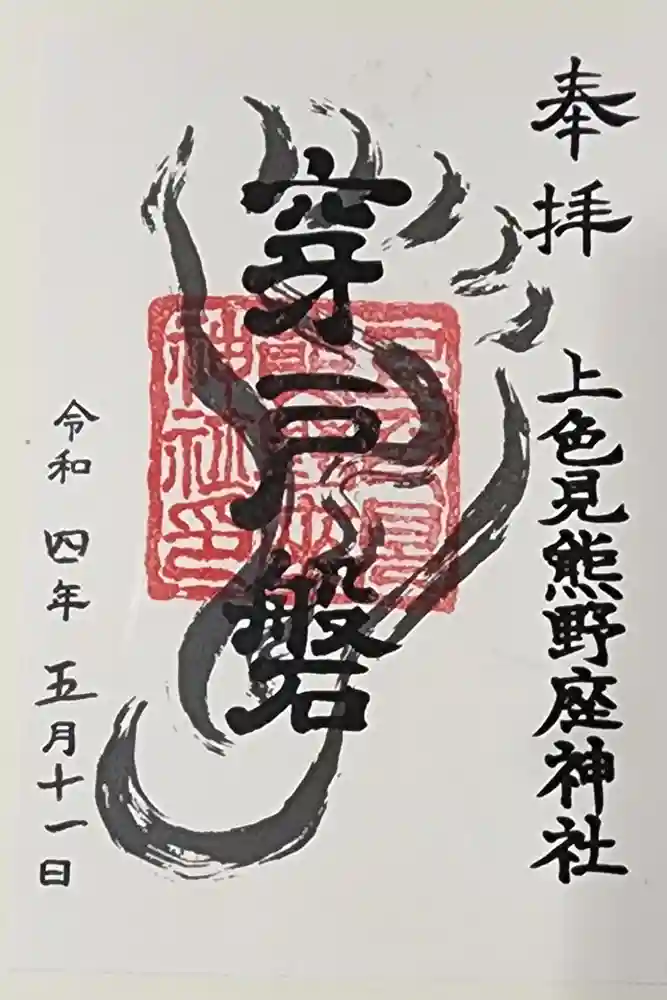 奉拝
上色見熊野座神社
穿戸磐
上色見
熊野座
神社印
令和四年五月十一日